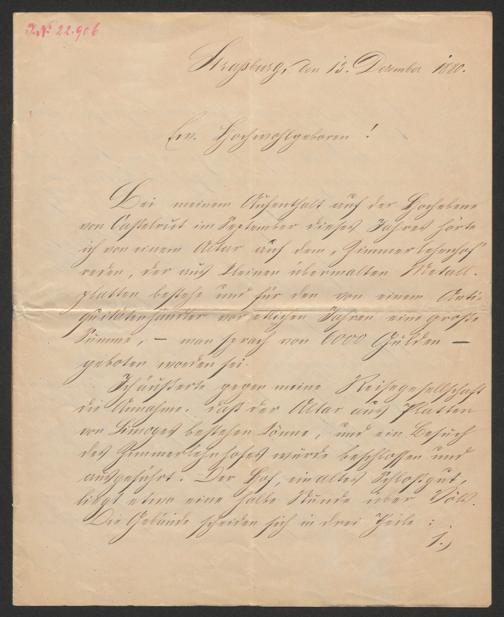 J.№ 22.906
Straßburg, den 13. Dezember 1880.
Ew. Hochwohlgeboren!
Bei meinem Aufenthalt auf der Hochebene
von Castelrut im September dieses Jahres hörte
ich von einem Altar auf dem „Zimmerlehenhof"
reden, der aus kleinen übermalten Metall-
platten bestehe und für den von einem Anti-
quitätenhändler vor etligen Jahren eine große
Summe, – man sprach von 6000 Gulden –
geboten worden sei.
Ich äußerte gegen meine Reisegesellschaft
die Annahme, daß der Altar aus Platten
von Limoges bestehen könne, und ein Besuch
des Zimmerlehnhofes wurde beschlossen und
ausgeführt. Der Hof, ein altes Schloßgut,
liegt etwa eine halbe Stunde über Völs.
Die Gebäude scheiden sich in drei Theile:
1.)